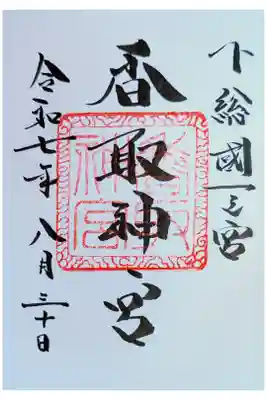 下総國一之宮
香取神宮
令和七年八月三十日
香取神宮